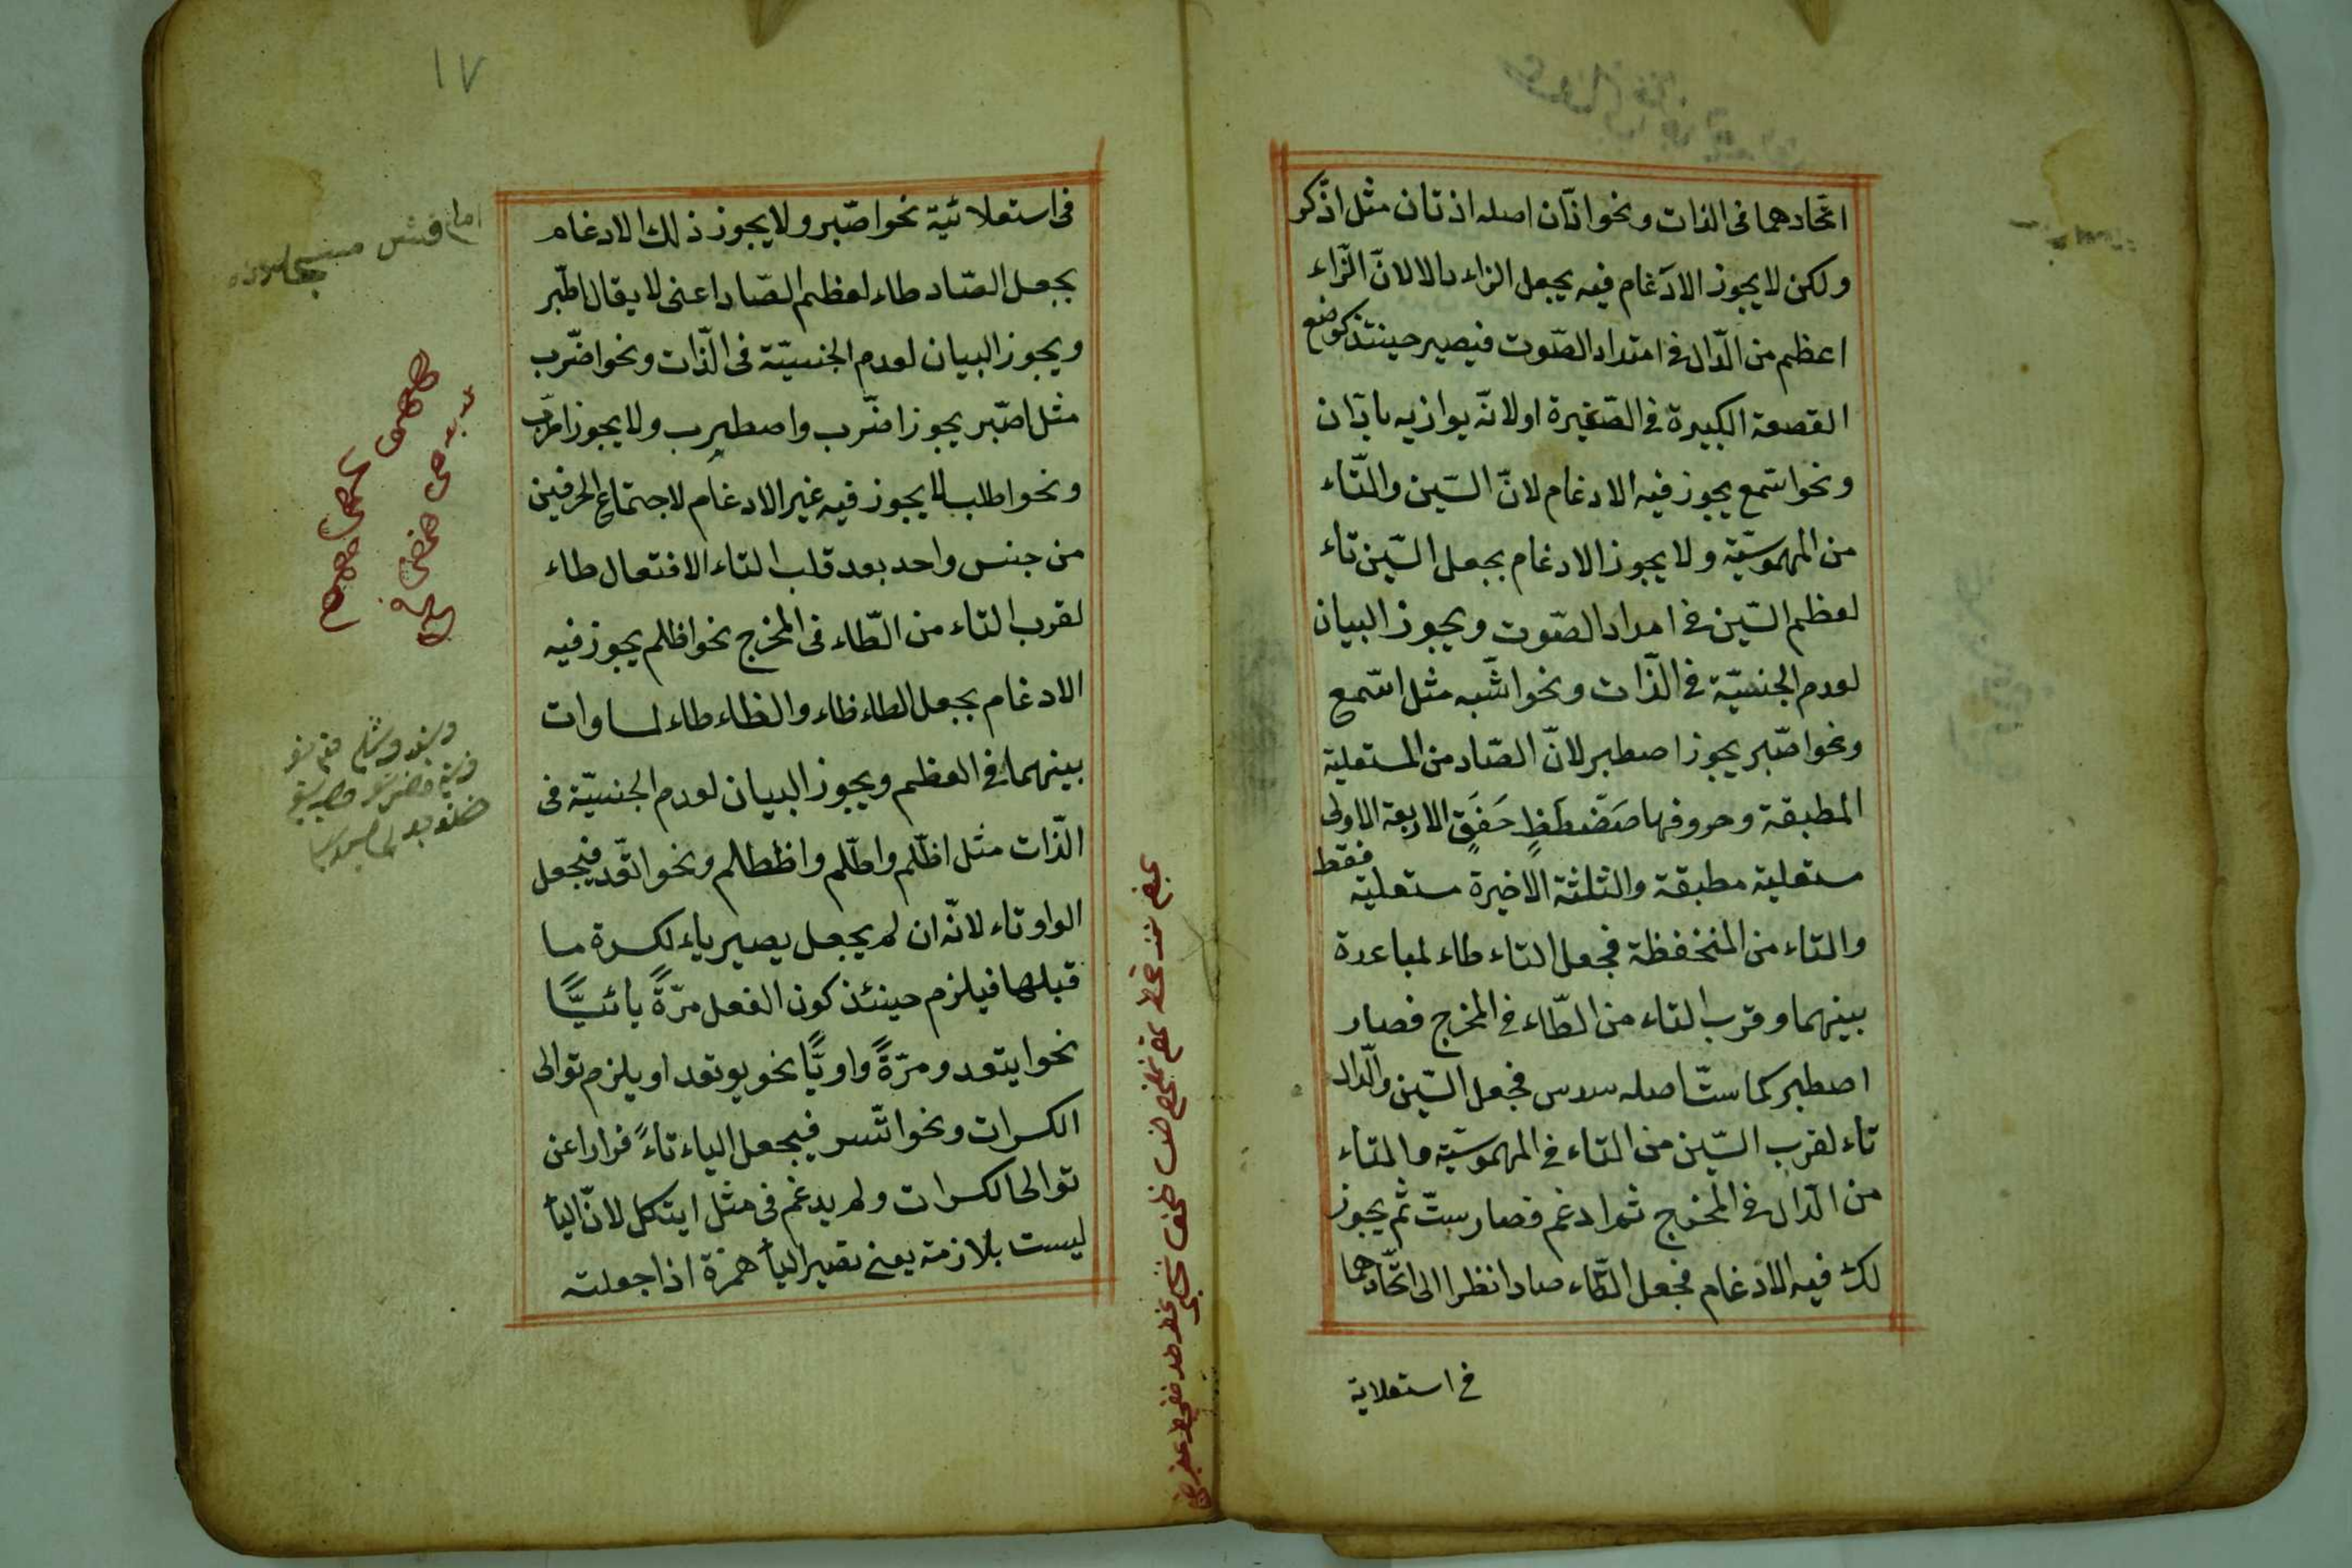 اتّحادهما فى الذات ونحو اذّان اصله اذتان مثل اذّكر
ولكن لا يجوز الادغام فيه يجعل الزاء دالا لانّ الزّاء
اعظم من الدّال فى امتداد الصّوت فيصير حينئذ كوضع
القصعة الكبيرة فى الصّغيرة او لانّه يوازيه بادّان
ونحو اسّمع يجوز فيه الادغام لانّ السّين والتّاء
من المهموسيّة ولا يجوز الادغام بجعل السّين تاء
لعظم السّين فى امداد الصّوت ويجوز البيان
لعدم الجنسيّة فى الذّات ونحو اشّبه مثل اسّمع
ونحو اصّبر يجوز اصطبر لانّ الصّاد من المستعلية
المطبقة وحروفها صَضْطَظٍ خَغَقٍ الاربعة الاولى
مستعلية مطبقة والثلثة الاخيرة مستعلية فقط
والتاء من المنخفظة فجعل التاء طاء لمباعدة
بينهما وقرب التاء من الطّاء فى المخرج فصار
اصطبر كما ستّ اصله سدس فجعل السّين والدّال
تاء لقرب السّين من التاء فى المهموسيّة والتاء
من الدّال فى المخرج ثم ادغم فصار ستّ ثم يجوز
لك فيه الادغام فجعل الطّاء صادا نظرا الى اتّحادهما
فى استعلاية
١٧
فى استعلائية نحو اصّبر ولا يجوز ذلك الادغام
بجعل الصّاد طاء لعظم الصّاد اعنى لا يقال اطّبر
ويجوز البيان لعدم الجنسيّة فى الذّات ونحو اضّرب
مثل اصّبر يجوز اضّرب واضطرب ولا يجوز اطّرب
ونحو اطلب لا يجوز فيه غير الادغام لاجتماع الحرفين
من جنس واحد بعد قلب التاء الافتعال طاء
لقرب التاء من الطّاء فى المخرج نحو اظلم يجوز فيه
الادغام بجعل الطاء ظاء والظاء طاء لمساوات
بينهما فى العظم ويجوز البيان لعدم الجنسيّة فى
الذّات مثل اظّلم واطّلم واظطلم ونحو اتّقد فيجعل
الواو تاء لانّه ان لم يجعل يصير ياء لكسرة ما
قبلها فيلزم حينئذ كون الفعل مرّةً يائيًّا
نحو ايتعد ومرّةً واويًّا نحو يوتعد او يلزم توالى
الكسرات ونحو اتّسر فيجعل الياء تاءً فرارا عن
توالى الكسرات ولم يدغم فى مثل ايتكل لانّ الياء
ليست بلازمة يعنى تصير الياء همزة اذا جعلته